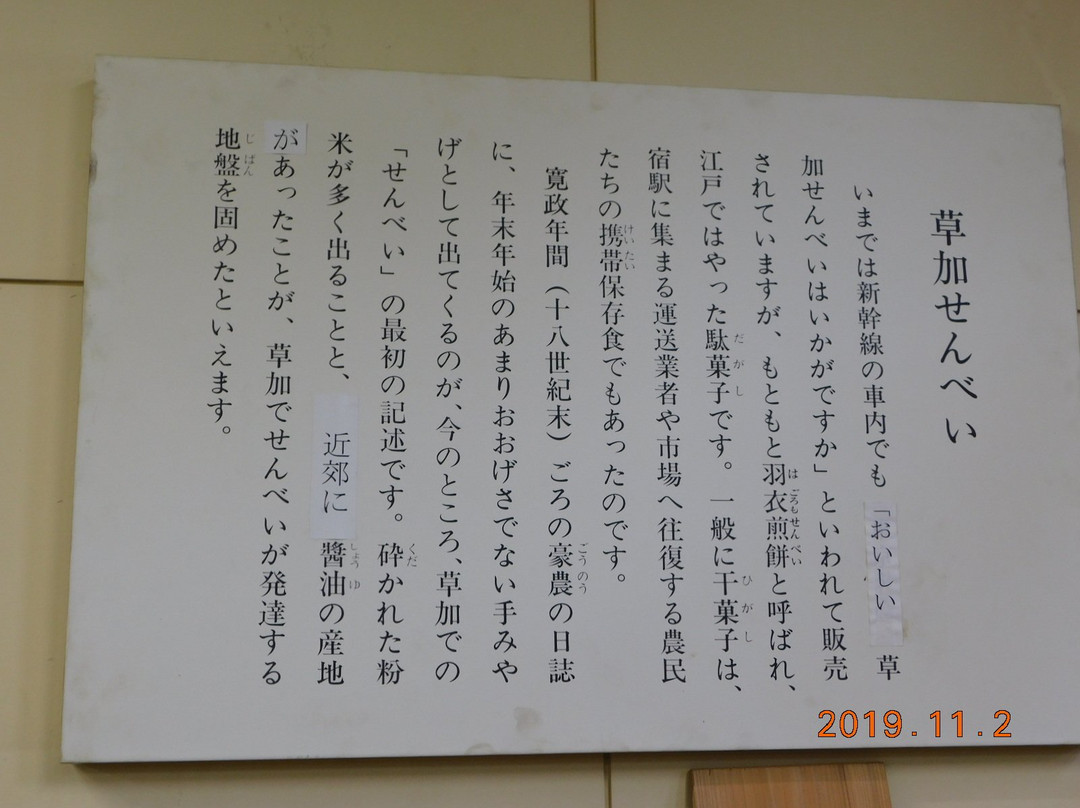 草加せんべい
いまでは新幹線の車内でも「おいしい草
加せんべいはいかがですか」といわれて販売
されていますが、もともと羽衣煎餅と呼ばれ、
はごろもせんべい
江戸ではやった駄菓子です。一般に干菓子は、
だがし
ひがし
宿駅に集まる運送業者や市場へ往復する農民
たちの携帯保存食でもあったのです。
けいたい
寛政年間(十八世紀末)ごろの豪農の日誌
ごうのう
に、年末年始のあまりおおげさでない手みや
げとして出てくるのが、今のところ、草加での
「せんべい」の最初の記述です。砕かれた粉
くだ
米が多く出ることと、近郊に醬油の産地
しょうゆ
があったことが、草加でせんべいが発達する
地盤を固めたといえます。
じばん
2019.11.2